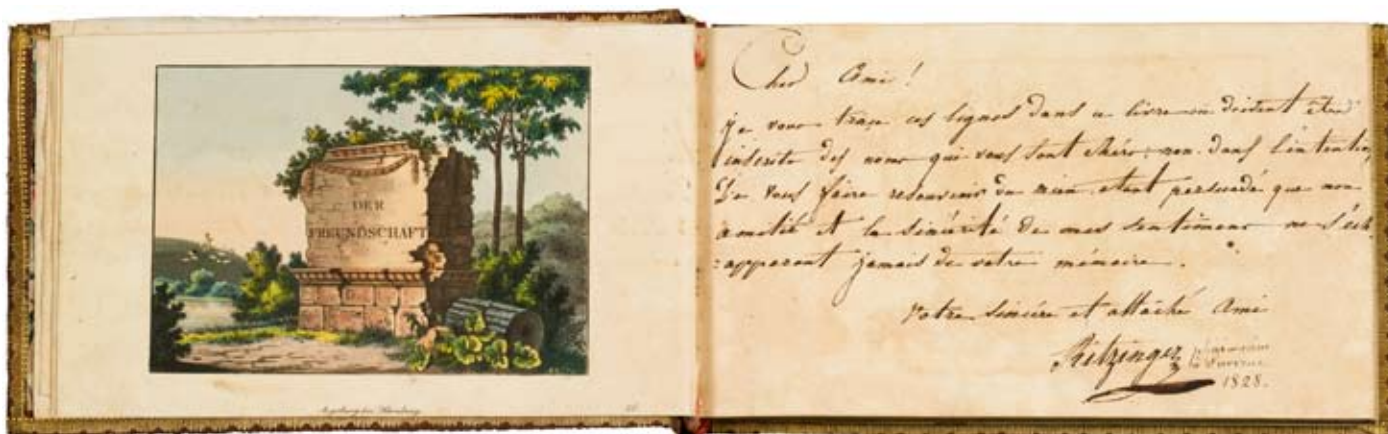 DER
FREUNDSCHAFT
Cher Ami!
je vous trace ces lignes dans ce livre ou doivent être
inscrits des noms qui vous sont chérs, non dans l'intention
De vous faire resouvenir du mien, etant persuadé que mon
amitié et la sincérité de mes sentimens ne s'éch
:apperont jamais de votre mémoire.
votre sincère et attaché Ami
Ritzinger
1828.